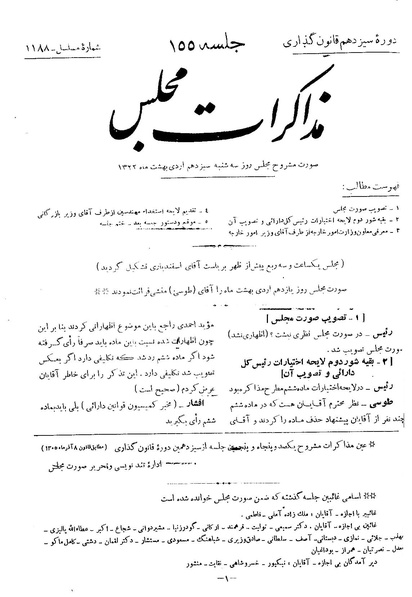 دورهٔ سیزدهم قانون گذاری
جلسه ۱۵۵
شمارهٔ مسلسل - ۱۱۸۸
مذاکرات مجلس
صورت مشروح مجلس روز سه شنبه سیزدهم اردی بهشت ماه ۱۳۲۲
فهرست مطالب:
۱ - تصویب صورت مجلس
۲ - بقیه شور دوم لایحه اختیارات رئیس کل دارائی و تصویب آن
۳ - معرفی معاون وزارت امور خارجه از طرف آقای وزیر امور خارجه
۴ - تقدیم لایحه استخدام مهندسین از طرف آقای وزیر بازرگانی
۵ - موقع و دستور جلسه بعد - ختم جلسه
(مجلس یکساعت و سه ربع پیش از ظهر بریاست آقای اسفندیاری تشکیل گردید)
صورت مجلس روز یازدهم اردی بهشت ماه را آقای (طوسی) منشی قرائت نمودند
[۱ - تصویب صورت مجلس]
رئیس - در صورت مجلس نظری نیست؟ (اظهاری نشد)
صورت مجلس تصویب شد.
[۲ - بقیه شور دوم لایحه اختیارات رئیس کل
دارائی و تصویب آن]
رئیس - در لایحه اختیارات ماده ششم مطرح مذاکره بود
طوسی - نظر محترم آقایان هست که در ماده ششم
چند نفر از آقایان پیشنهاد حذف ماده را کردند و آقای
مؤید احمدی راجع باین موضوع اظهاراتی کردند بنا بر این
چون اظهارات شده نسبت باین ماده باید صرفاً رأی گرفته
شود اگر ماده ششم رد شد که تکلیفی دارد اگر بعکس
تصویب شد تکلیفی دارد. این تذکر را برای خاطر آقایان
عرض کردم (صحیح است)
افشار - (مخبر کمیسیون قوانین دارائی) بلی باید بماده
ششم رأی بگیرید
عین مذاکرات مشروح یکصد و پنجاه و پنجمین جلسه از سیزدهمین دورهٔ قانون گذاری (مطابق قانون ۸ آذر ماه ۱۳۰۵)
ادارهٔ تند نویسی و تحریر صورت مجلس
اسامی غائبین جلسه گذشته که ضمن صورت مجلس خوانده شده است
غائبین با اجازه - آقایان: ملک زاده آملی - فاطمی.
غائبین بی اجازه - آقایان: دکتر سمیعی - تولیت - فرهمند - اردکانی - گودرزنیا - مشیردوانی - شجاع - اکبر - عطاءالله پالیزی -
جلائی - نمازی - دبستانی - آصف - سلطانی - صادق وزیری - شباهنگ - مسعودی - مستشار - دکتر لقمان - دشتی - کامل ماکو -
معدل - نصرتیان - هراز - بوداغیان
دیر آمدگان بی اجازه - آقایان: نیکپور - خسروشاهی - نقابت - منشور
-۱-